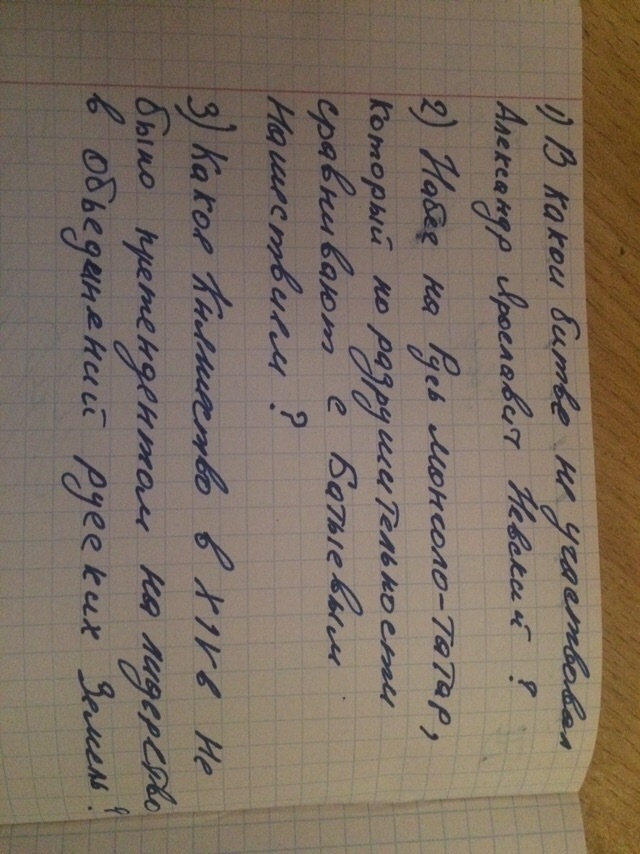 1) В какой битве не участвовал
Александр Ярославич Невский ?
2) Набег на Русь монголо-татар,
который по разрушительности
сравнивают с Батыевым
Нашествием ?
3) Какое Княжество в XIV в не
было претендентом на лидерство
в объединений русских Земель?